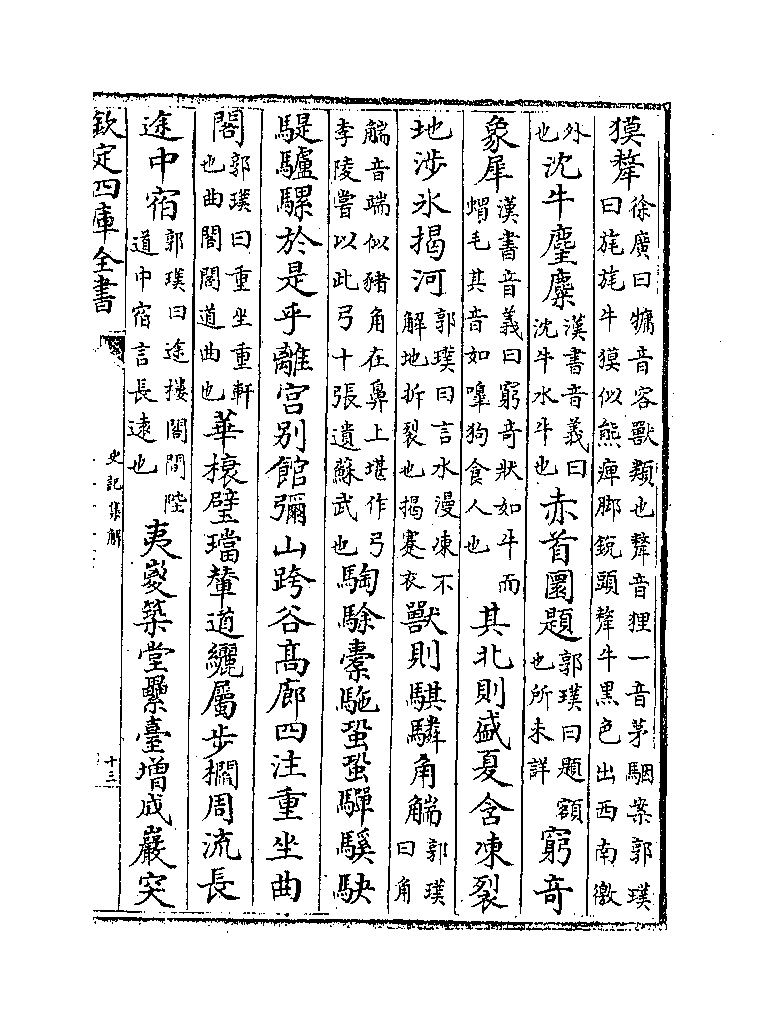 獏犛徐廣曰音容獸類也犛音狸一音茅駰案郭璞
曰旄旄牛獏似熊庳脚銳頭犛牛黑色出西南徼
外也沈牛麈麋漢書音義曰沈牛水牛也赤首圜題郭璞曰題額也所未詳窮奇
象犀漢書音義曰窮奇狀如斗而蝟毛其音如嘷狗食人也其北則盛夏含凍裂
地涉氷揭河郭璞曰言水漫凍不解地拆裂也揭蹇衣獸則騏驎角𧤗郭璞曰角
𧤗音端似豬角在鼻上堪作弓李陵嘗以此弓十張遺蘇武也騊駼橐駞蛩蛩驒騱駃
騠驢騾於是乎離宮别館彌山跨谷髙廊四注重坐曲
閣郭璞曰重坐重軒也曲閣閣道曲也華榱璧璫輦道纚屬步櫩周流長
途中宿郭璞曰途樓閣間陛道中宿言長逺也夷嵏築堂纍臺增成巖突
欽定四庫全書
史記集解
十三